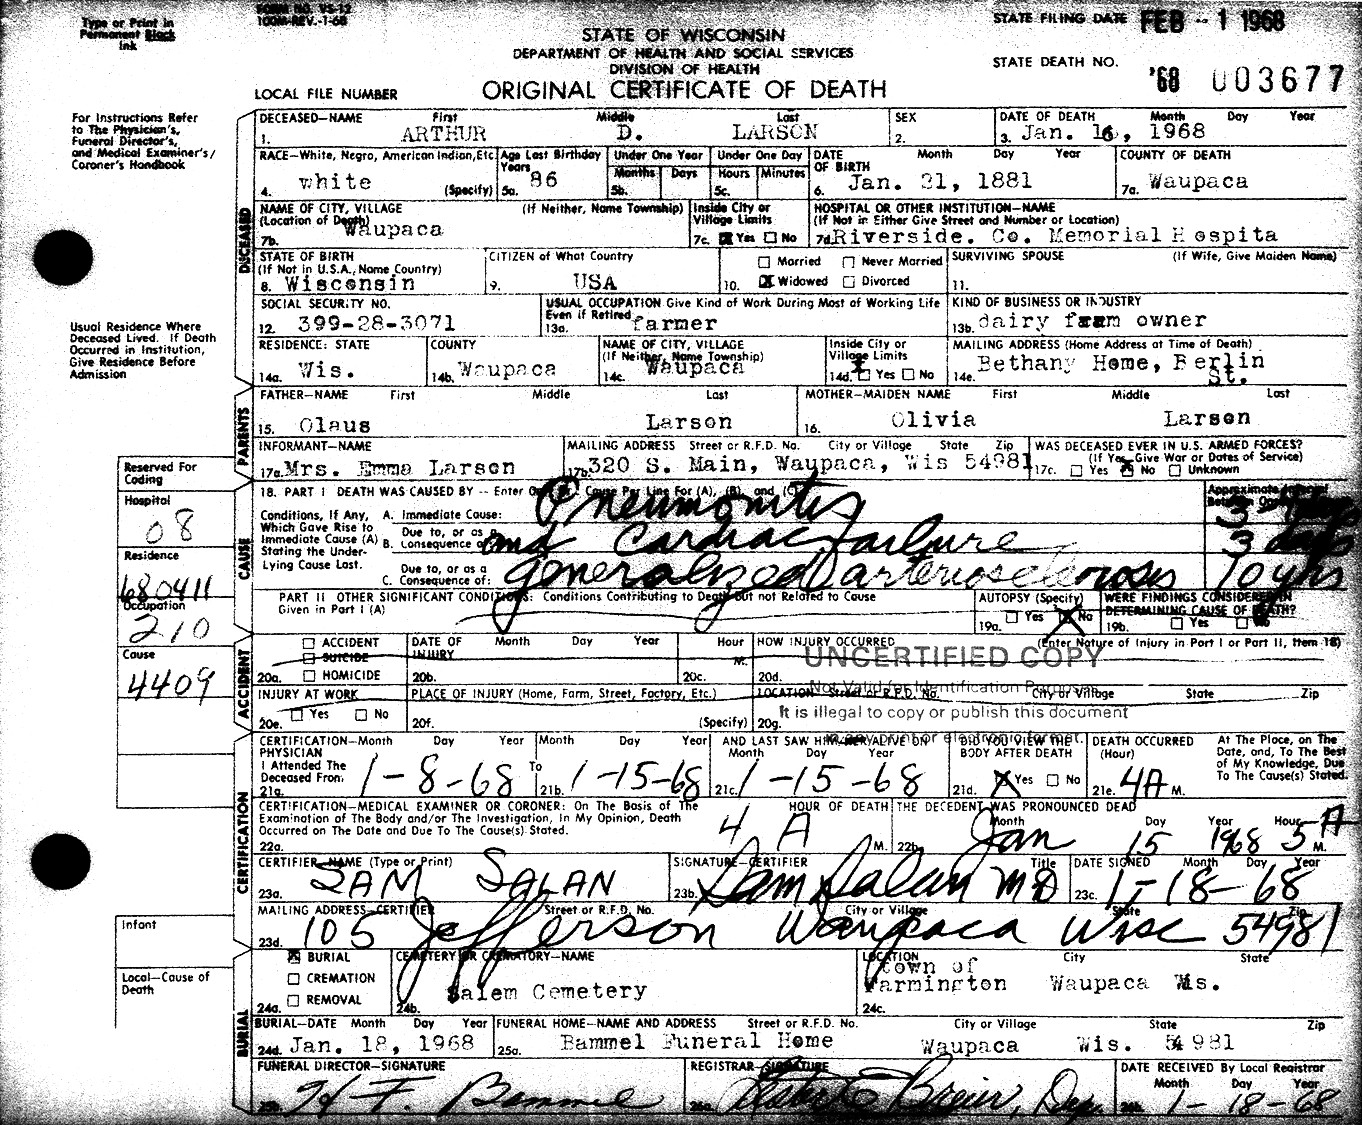 Type or Print in
Permanent Black
Ink
FORM NO. VS-12
100M-REV.-1-68
STATE OF WISCONSIN
DEPARTMENT OF HEALTH AND SOCIAL SERVICES
DIVISION OF HEALTH
ORIGINAL CERTIFICATE OF DEATH
STATE FILING DATE FEB -1 1968
STATE DEATH NO. '68 003677
LOCAL FILE NUMBER
For Instructions Refer
to The Physician's,
Funeral Director's,
and Medical Examiner's/
Coroner's Handbook
DECEASED
DECEASED—NAME First Middle Last SEX DATE OF DEATH Month Day Year
1. ARTHUR D. LARSON 2. 3. Jan. 16, 1968
RACE—White, Negro, American Indian, Etc. Age Last Birthday Under One Year Under One Day DATE OF BIRTH Month Day Year COUNTY OF DEATH
Years Months Days Hours Minutes
4. white (Specify) 5a. 86 5b. 5c. 6. Jan. 21, 1881 7a. Waupaca
NAME OF CITY, VILLAGE (If Neither, Name Township) Inside City or HOSPITAL OR OTHER INSTITUTION—NAME
(Location of Death) Village Limits (If Not in Either Give Street and Number or Location)
7b. Waupaca 7c. Yes No 7d. Riverside. Co. Memorial Hospita
STATE OF BIRTH CITIZEN of What Country Married Never Married SURVIVING SPOUSE (If Wife, Give Maiden Name)
(If Not in U.S.A., Name Country)
8. Wisconsin 9. USA 10. Widowed Divorced 11.
Usual Residence Where
Deceased Lived. If Death
Occurred in Institution,
Give Residence Before
Admission
SOCIAL SECURITY NO. USUAL OCCUPATION Give Kind of Work During Most of Working Life KIND OF BUSINESS OR INDUSTRY
Even if Retired
12. 399-28-3071 13a. farmer 13b. dairy farm owner
RESIDENCE: STATE COUNTY NAME OF CITY, VILLAGE Inside City or MAILING ADDRESS (Home Address at Time of Death)
(If Neither, Name Township) Village Limits
14a. Wis. 14b. Waupaca 14c. Waupaca 14d. Yes No 14e. Bethany Home, Berlin
St.
PARENTS
FATHER—NAME First Middle Last MOTHER—MAIDEN NAME First Middle Last
15. Olaus Larson 16. Olivia Larson
INFORMANT—NAME MAILING ADDRESS Street or R.F.D. No. City or Village State Zip WAS DECEASED EVER IN U.S. ARMED FORCES?
(If Yes, Give War or Dates of Service)
17a. Mrs. Emma Larson 17b. 320 S. Main, Waupaca, Wis 54981 17c. Yes No Unknown
Reserved For
Coding
Hospital
08
Residence
680411
Occupation
210
Cause
4409
CAUSE
18. PART I DEATH WAS CAUSED BY -- Enter Only One Cause Per Line For (A), (B), and (C)
Conditions, If Any,
Which Gave Rise to
Immediate Cause (A)
Stating the Under-
Lying Cause Last.
A. Immediate Cause: Pneumonitis 3
Due to, or as a
B. Consequence of: and Cardiac failure 3 days
Due to, or as a
C. Consequence of: generalized arteriosclerosis 10 yrs
PART II OTHER SIGNIFICANT CONDITIONS: Conditions Contributing to Death but not Related to Cause
Given in Part I (A)
AUTOPSY (Specify)
19a. Yes No
WERE FINDINGS CONSIDERED IN
DETERMINING CAUSE OF DEATH?
19b. Yes No
ACCIDENT
ACCIDENT
SUICIDE
20a. HOMICIDE
DATE OF INJURY Month Day Year
20b.
Hour
M.
20c.
HOW INJURY OCCURRED (Enter Nature of Injury in Part I or Part II, Item 18)
20d.
UNCERTIFIED COPY
Not Valid for Identification Purposes
It is illegal to copy or publish this document
in any print or electronic format.
INJURY AT WORK PLACE OF INJURY (Home, Farm, Street, Factory, Etc.) LOCATION Street or R.F.D. No. City or Village State Zip
20e. Yes No 20f. (Specify) 20g.
CERTIFICATION
CERTIFICATION—Month Day Year Month Day Year AND LAST SAW HIM/HER ALIVE ON DID YOU VIEW THE DEATH OCCURRED At The Place, on The
PHYSICIAN Month Day Year BODY AFTER DEATH (Hour) Date, and, To The Best
I Attended The of My Knowledge, Due
Deceased From: To The Cause(s) Stated.
21a. 1-8-68 To 21b. 1-15-68 21c. 1-15-68 21d. Yes No 21e. 4A M.
CERTIFICATION—MEDICAL EXAMINER OR CORONER: On The Basis of The HOUR OF DEATH THE DECEDENT WAS PRONOUNCED DEAD
Examination of The Body and/or The Investigation, In My Opinion, Death Month Day Year Hour
Occurred on The Date and Due To The Cause(s) Stated.
22a. 4 A M. 22b. Jan 15 1968 5 A M.
CERTIFIER—NAME (Type or Print) SIGNATURE—CERTIFIER Title DATE SIGNED Month Day Year
23a. SAM SALAN 23b. Sam Salan MD 23c. 1-18-68
MAILING ADDRESS—CERTIFIER Street or R.F.D. No. City or Village State Zip
23d. 105 Jefferson Waupaca Wisc 54981
Infant
Local—Cause of
Death
BURIAL
BURIAL
CREMATION
24a. REMOVAL
CEMETERY OR CREMATORY—NAME
24b. Salem Cemetery
LOCATION City State
town of
Farmington Waupaca Wis.
24c.
BURIAL—DATE Month Day Year FUNERAL HOME—NAME AND ADDRESS Street or R.F.D. No. City or Village State Zip
24d. Jan. 18, 1968 25a. Bammel Funeral Home Waupaca Wis. 54981
FUNERAL DIRECTOR—SIGNATURE REGISTRAR—SIGNATURE DATE RECEIVED By Local Registrar
Month Day Year
H F. Bammel Dep. 1-18-68